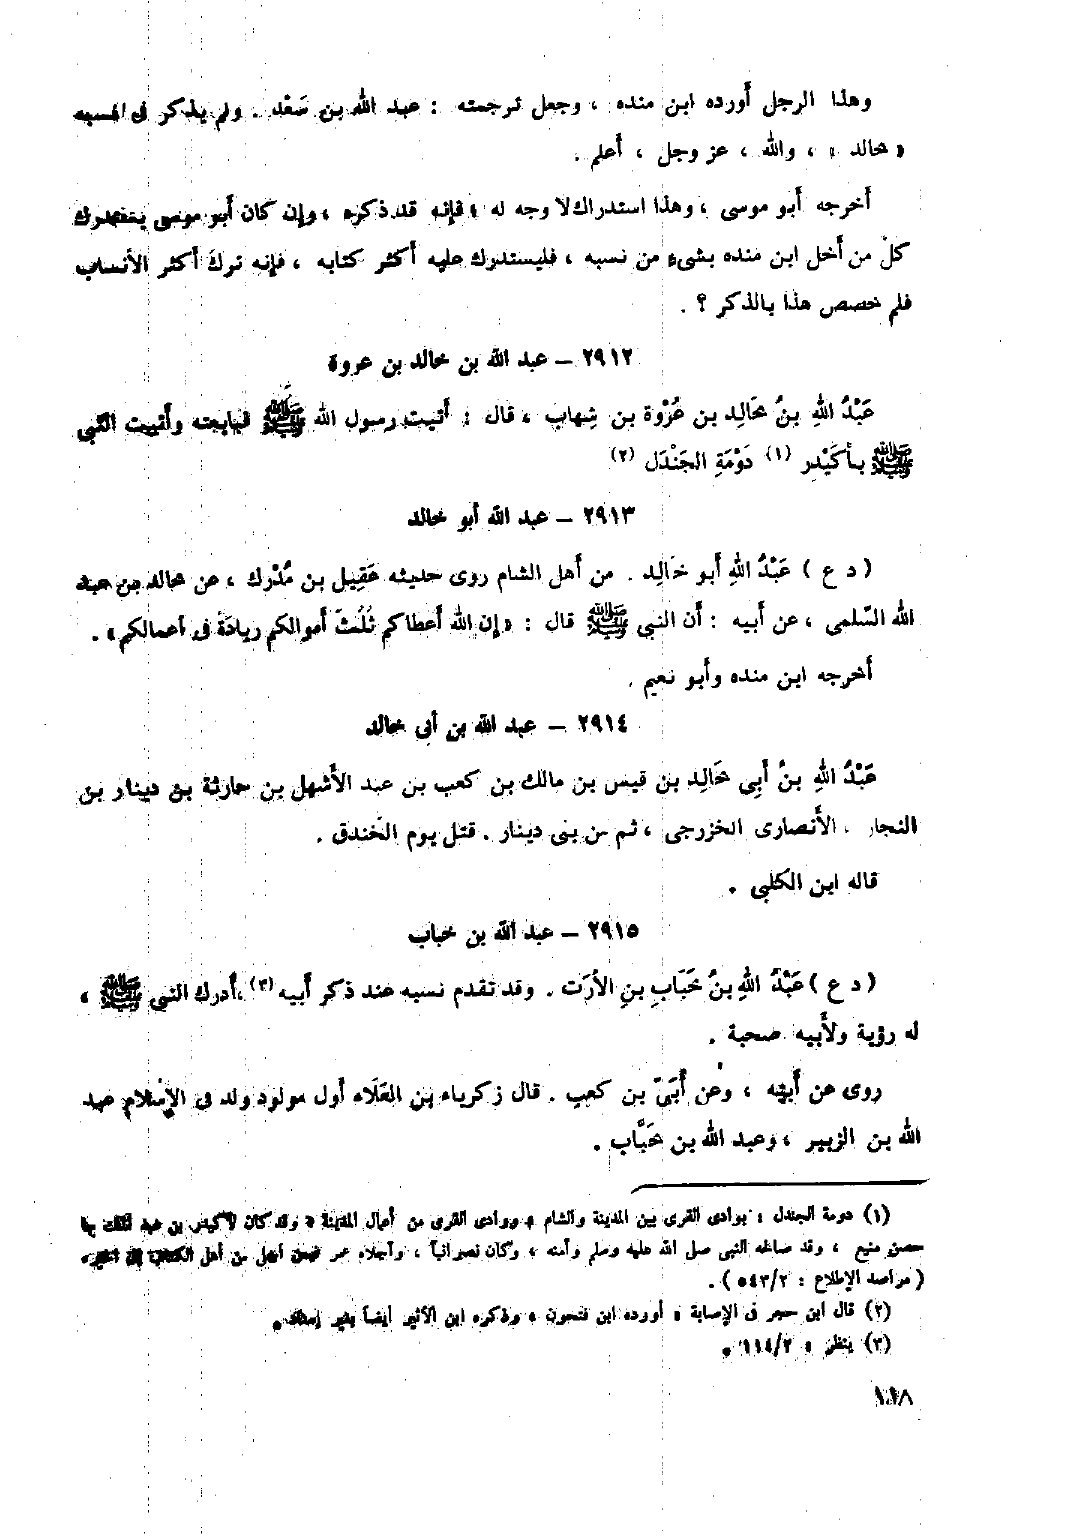 وهذا الرجل أَورده ابن منده ، وجعل ترجمته : عبد الله بن سَعْد . ولم يذكر فى نسبه
« خالد » ، والله ، عز وجل ، أَعلم .
أَخرجه أَبو موسى ، وهذا استدراك لا وجه له ؛ فإِنه قد ذكره ، وإِن كان أَبو موسى يستدرك
كلّ من أَخل ابن منده بشىءٍ من نسبه ، فليستدرك عليه أَكثر كتابه ، فإِنه ترك أَكثر الأَنساب
فلم خصص هذا بالذكر ؟ .
٢٩١٢ – عبد الله بن خالد بن عروة
عَبْدُ اللهِ بنُ خَالِد بن عُرْوة بن شِهاب ، قال : أَتيت رسول الله ﷺ فبايعته وأَتيت النبى
ﷺ بأُكَيْدِر (١) دَوْمَةِ الجَنْدَل (٢)
٢٩١٣ – عبد الله أبو خالد
( د ع ) عَبْدُ اللهِ أَبو خَالِد . من أَهل الشام روى حديثه عَقِيل بن مُدْرك ، عن خالد بن عبد
الله السّلمى ، عن أَبيه : أَن النبى ﷺ قال : « إِن الله أَعطاكم ثُلُثَ أَموالكم زيادَةً فى أَعمالكم » .
أَخرجه ابن منده وأَبو نعيم .
٢٩١٤ – عبد الله بن أبى خالد
عَبْدُ اللهِ بنُ أَبِى خَالِد بن قيس بن مالك بن كعب بن عبد الأَشهل بن حارثة بن دينار بن
النجار . الأَنصارى الخزرجى ، ثم من بنى دينار . قتل يوم الخندق .
قاله ابن الكلبى .
٢٩١٥ – عبد الله بن خباب
( د ع ) عَبْدُ اللهِ بنُ خَبَابِ بنِ الأَرَت . وقد تقدم نسبه عند ذكر أَبيه (٣) ، أَدرك النبى ﷺ ،
له رؤية ولأَبيه صحبة .
روى عن أَبيه ، وعن أُبَىّ بن كعب . قال زكرياء بن العَلَاء أَول مولود ولد فى الإِسْلام عبد
الله بن الزبير ، وعبد الله بن خَبَّاب .
(١) دومة الجندل : بوادى القرى بين المدينة والشام ، ووادى القرى من أعمال المدينة ، وقد كان لأكيدر بن عبد الملك بها
حصن منيع ، وقد صالحه النبى صلى الله عليه وسلم وأمنه ، وكان نصرانياً ، وأجلاه عمر فيمن أجلى من أهل الكتاب إلى الحيرة
( مراصد الإطلاع : ٥٤٣/٢ ) .
(٢) قال ابن حجر فى الإصابة : أورده ابن فتحون ، وذكره ابن الأثير أيضاً بغير إسناد .
(٣) ينظر : ١١٤/٢ .
١١٨